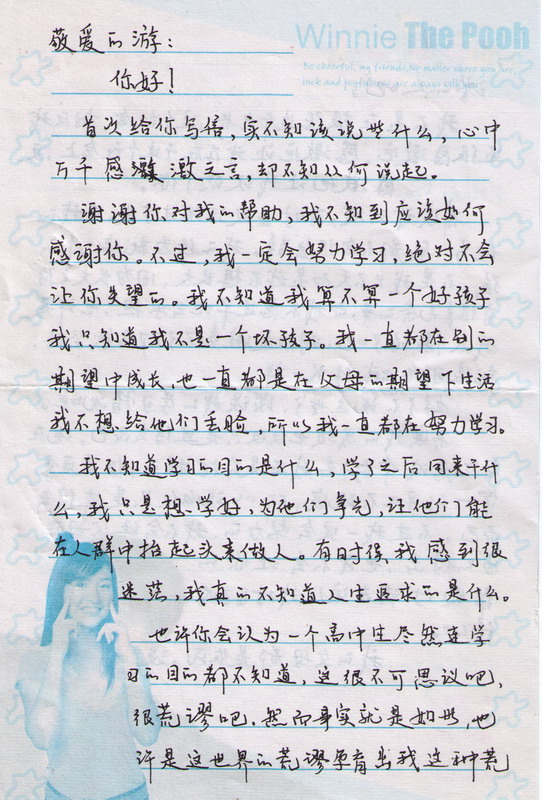 Winnie The Pooh
Be cheerful, my friends. No matter where you are,
luck and joyfulness are always with you!
敬爱的游：
你好！
首次给你写信，实不知该说些什么，心中
万千感激之言，却不知从何说起。
谢谢你对我的帮助，我不知到应该如何
感谢你。不过，我一定会努力学习，绝对不会
让你失望的。我不知道我算不算一个好孩子
我只知道我不是一个坏孩子。我一直都在别的
期望中成长，也一直都是在父母的期望下生活
我不想给他们丢脸，所以我一直都在努力学习。
我不知道学习的目的是什么，学了之后回来干什
么，我只是想学好，为他们争先，让他们能
在人群中抬起头来做人。有时候我感到很
迷茫，我真的不知道人生追求的是什么。
也许你会认为一个高中生尽然连学
习的目的都不知道，这很不可思议吧，
很荒谬吧，然而事实就是如此，也
许是这世界的荒谬孕育出我这种荒